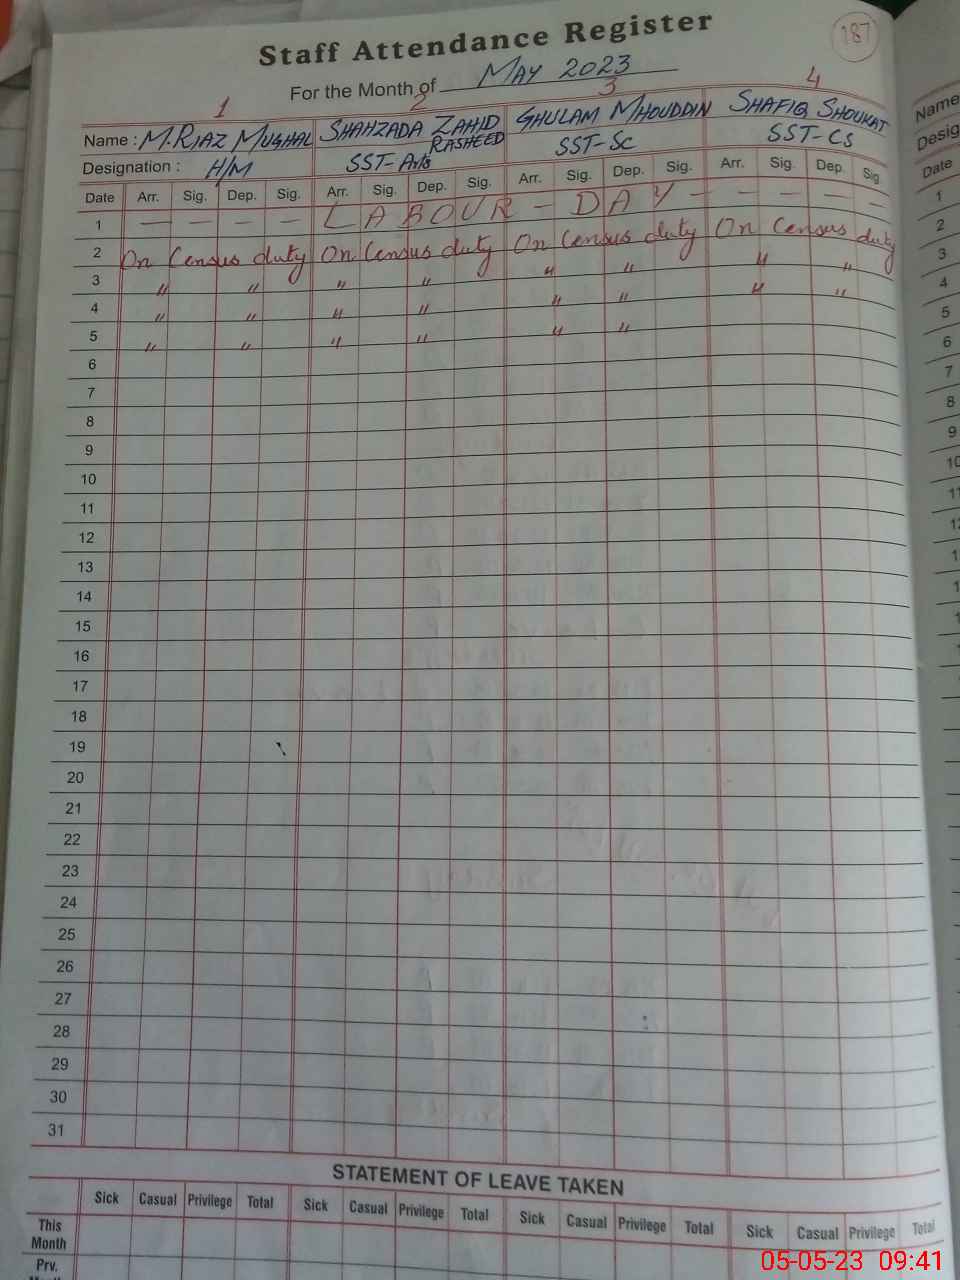 187
Staff Attendance Register
For the Month of MAY 2023
1 2 3 4
Name : M.RIAZ MUGHAL SHAHZADA ZAHID RASHEED GHULAM MHOUDDIN SHAFIQ SHOUKAT
Designation : H/M SST-Arts SST-Sc SST-CS
Date Arr. Sig. Dep. Sig. Arr. Sig. Dep. Sig. Arr. Sig. Dep. Sig. Arr. Sig. Dep. Sig.
1 — — — — LABOUR - DAY - - - - -
2 On Census duty On Census duty On Census duty On Census duty
3 " " " " " " " "
4 " " " " " " " "
5 " " " " " "
6
7
8
9
10
11
12
13
14
15
16
17
18
19
20
21
22
23
24
25
26
27
28
29
30
31
STATEMENT OF LEAVE TAKEN
Sick Casual Privilege Total Sick Casual Privilege Total Sick Casual Privilege Total Sick Casual Privilege Total
This Month
Prv.
Name
Desig
Date
1
2
3
4
5
6
7
8
9
10
11
05-05-23 09:41